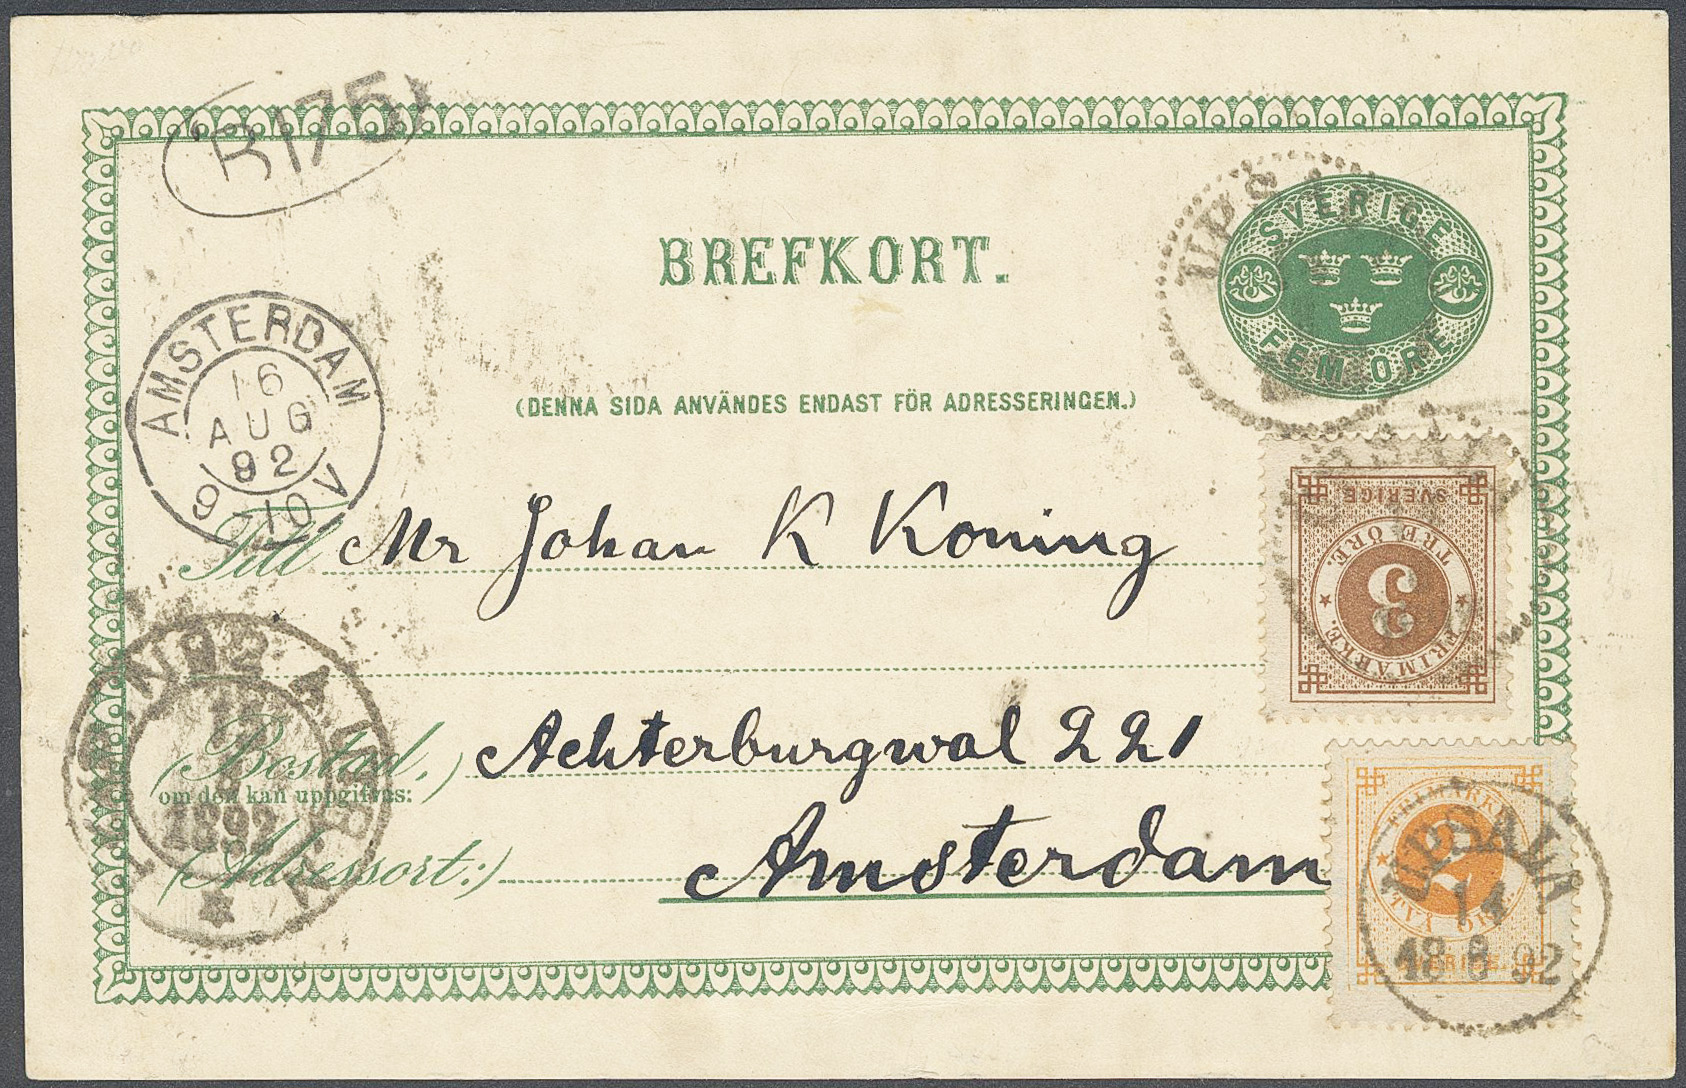 R 175
BREFKORT.
SVERIGE
FEM ÖRE
UPS
(DENNA SIDA ANVÄNDES ENDAST FÖR ADRESSERINGEN.)
AMSTERDAM
16
AUG
92
9-10V
Till Mr Johan K Koning
SVERIGE
TRE ÖRE.
3
FRIMÄRKE.
N92A
1892
(Bostad,) Achterburgwal 221
om den kan uppgifvas:
(Adressort:) Amsterdam
FRIMÄRKE
2
TVÅ ÖRE.
SVERIGE.
UPSALA
14
18 8 92